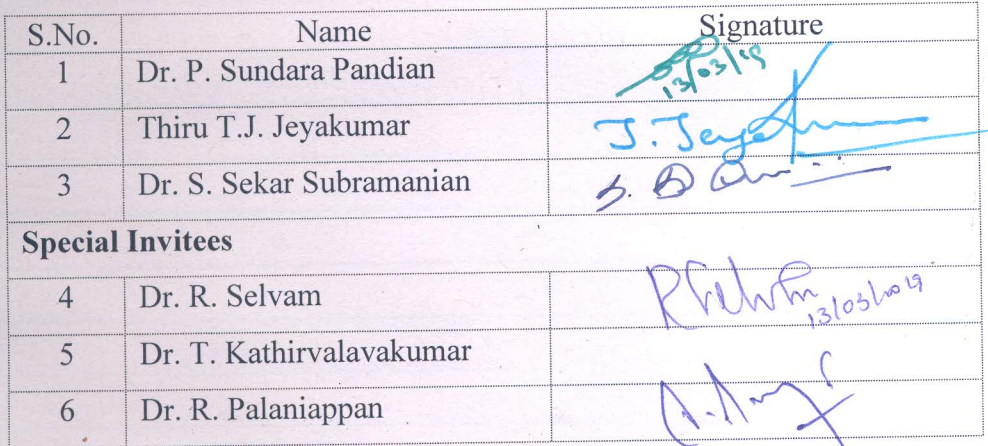 S.No. Name Signature
1 Dr. P. Sundara Pandian 13/03/19
2 Thiru T.J. Jeyakumar J. Jeyakumar
3 Dr. S. Sekar Subramanian
Special Invitees
4 Dr. R. Selvam 13/03/2019
5 Dr. T. Kathirvalavakumar
6 Dr. R. Palaniappan